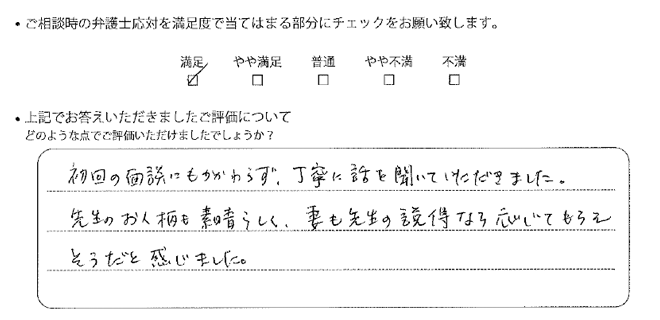 ・ご相談時の弁護士応対を満足度で当てはまる部分にチェックをお願い致します。
満足 やや満足 普通 やや不満 不満
☑ □ □ □ □
・上記でお答えいただきましたご評価について
どのような点でご評価いただけましたでしょうか？
初回の面談にもかかわらず、丁寧に話を聞いていただきました。
先生のお人柄も素晴らしく、妻も先生の説得なら応じてもらえ
そうだと感じました。